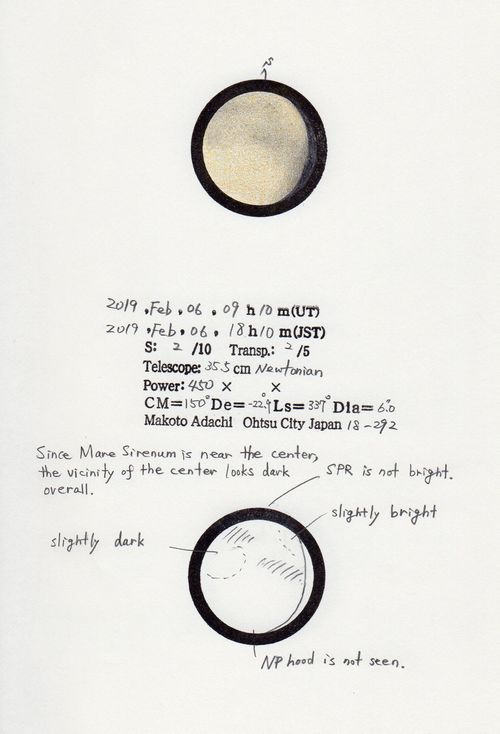 S
2019, Feb, 06, 09 h 10 m(UT)
2019, Feb, 06, 18 h 10 m(JST)
S: 2 /10 Transp.: 2 /5
Telescope: 35.5 cm Newtonian
Power: 450 × ×
CM=150° De=-22.9° Ls=337° Dia=6".0
Makoto Adachi Ohtsu City Japan 18-292
Since Mare Sirenum is near the center,
the vicinity of the center looks dark
overall.
SPR is not bright.
slightly bright
slightly dark
NP hood is not seen.